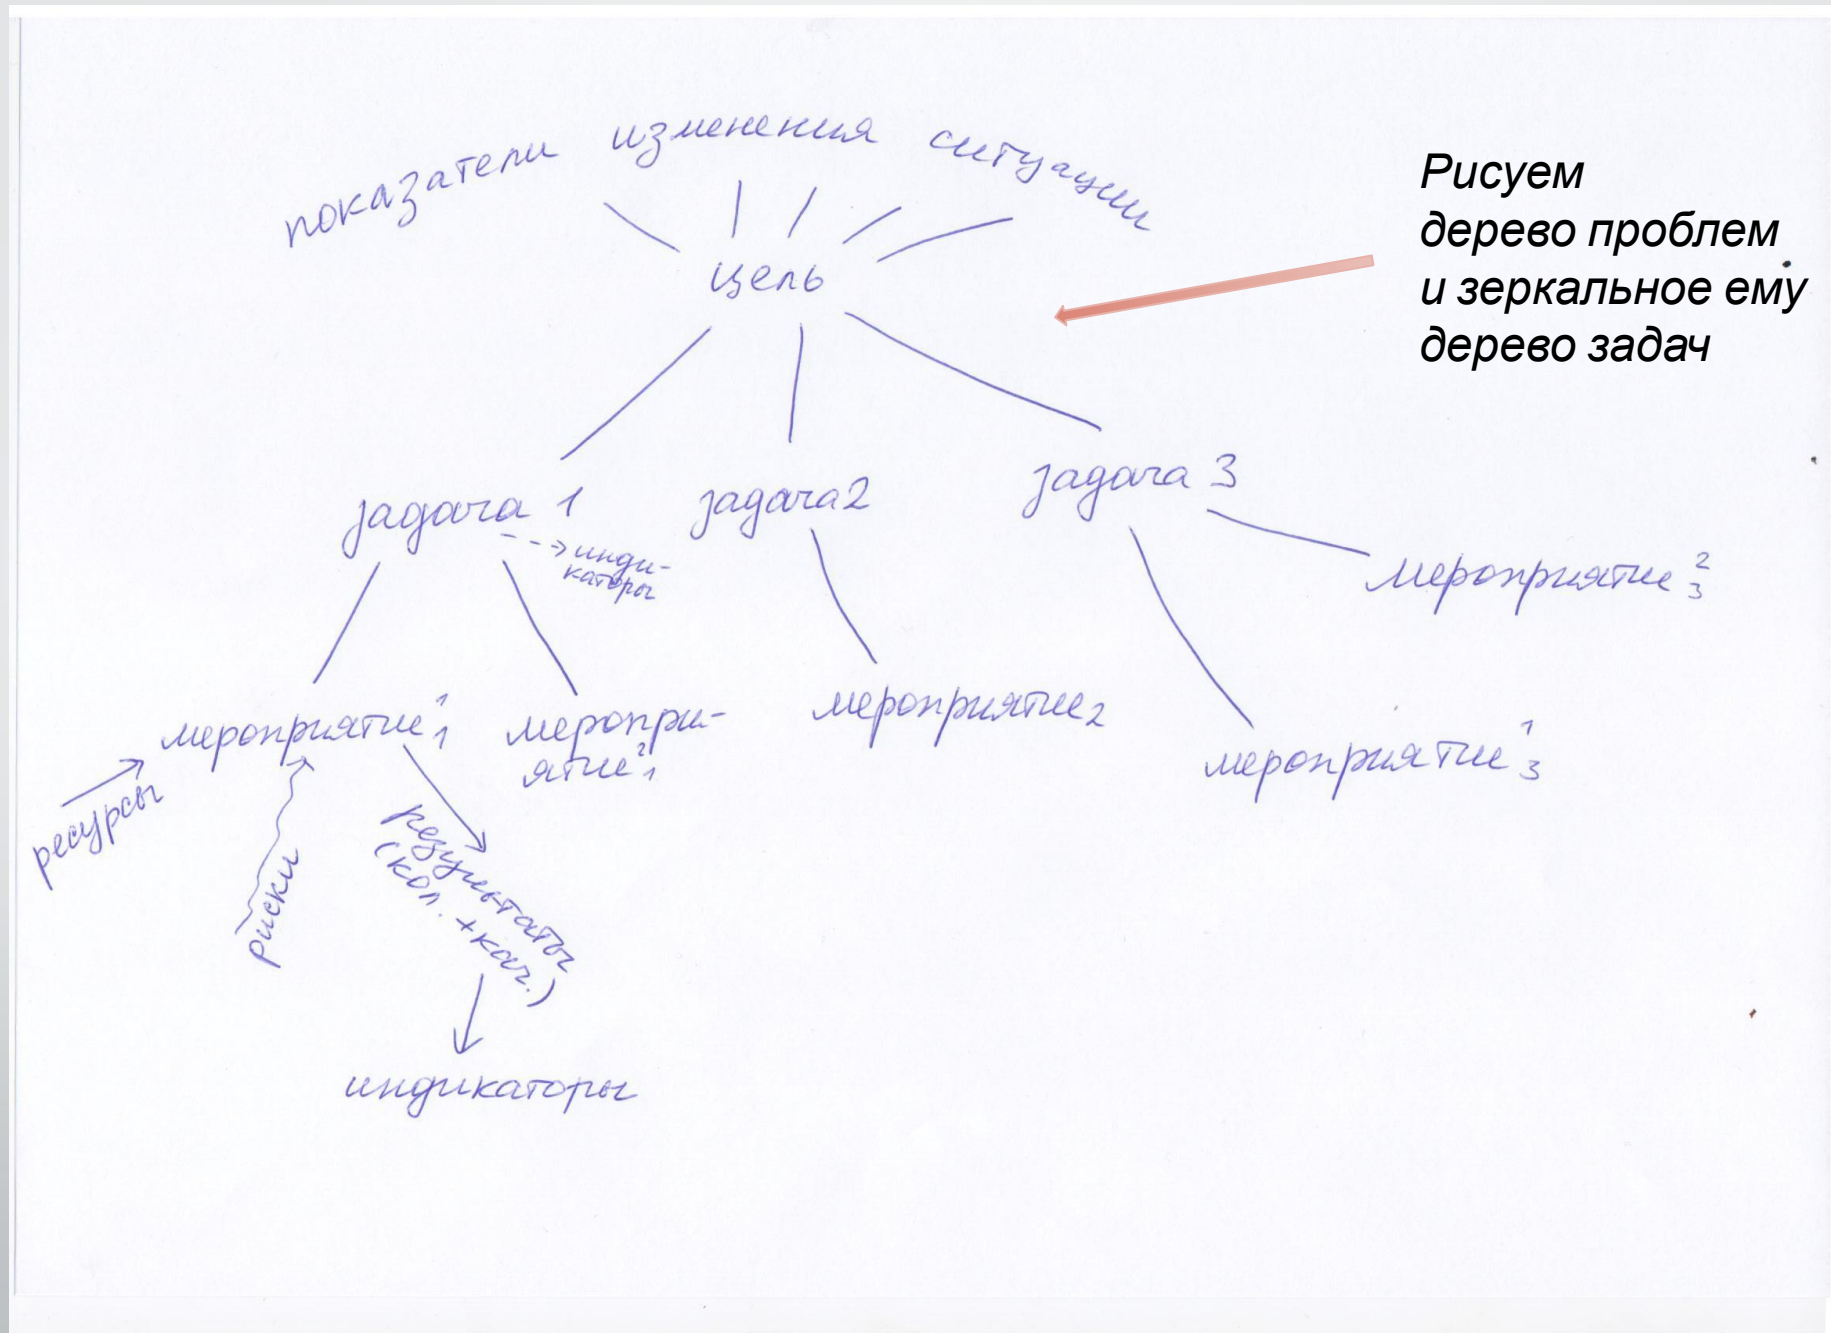 показатели изменения ситуации
Рисуем
дерево проблем
и зеркальное ему
дерево задач
цель
задача 1
задача 2
задача 3
инди-
каторы
мероприятие ² ₃
мероприятие ¹ ₁
меропри-
ятие ² ₁
мероприятие ₂
мероприятие ¹ ₃
ресурсы
риски
результаты
(кол. + кач.)
индикаторы